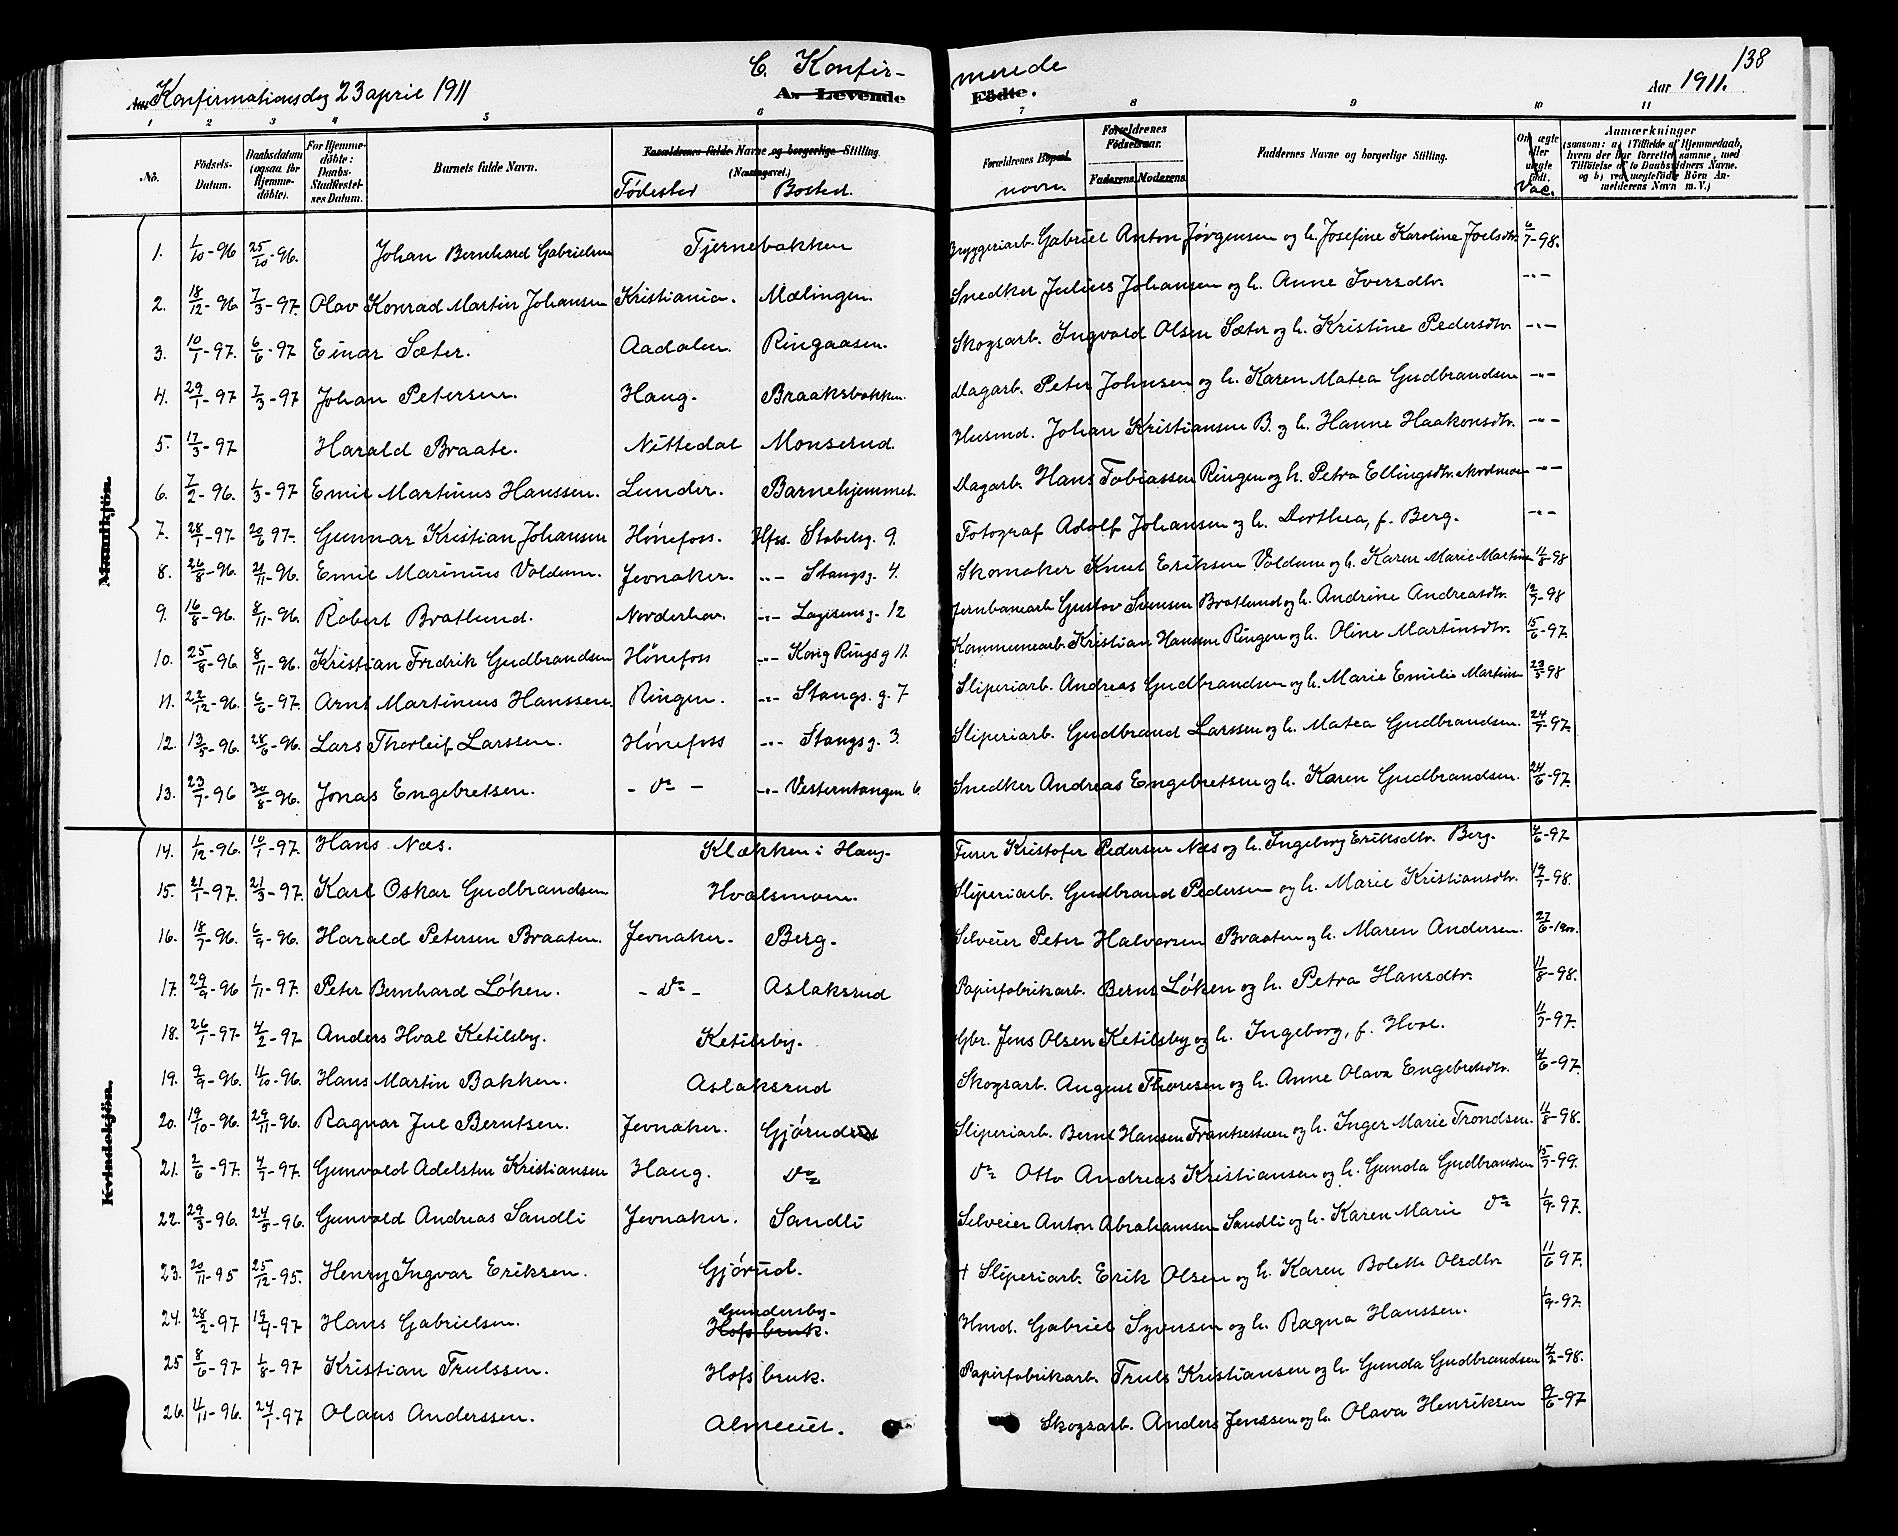 138
C. Konfir- merede
Konfirmationsdag 23 april 1911
A. Levende Födte.
Aar 1911.
1 2 3 4 5 6 7 8 9 10 11
No. Födsels-Datum. Daabsdatum (ogsaa for Hjemme-döbte). For Hjemme-döbte: Daabs-Stadfæstel-ses Datum. Barnets fulde Navn. Forældrenes fulde Navne og borgerlige Stilling. (Næringsvei.) Födested Bosted. Forældrenes Bopæl. navn Forældrenes Födselsaar. Faderens. Moderens. Faddernes Navne og borgerlige Stilling. Om ægte eller uægte født. Vac. Anmærkninger (saasom: a) i Tilfælde af Hjemmedaab, hvem der har forrettet samme, med Tilföielse af to Daabsvidners Navne, og b) ved uægtefödte Börn Anmelderens Navn m. V.)
Mandkjön.
1. 1/10-96 25/10-96. Johan Bernhard Gabrielsen Tjernebakken Bryggeriarb. Gabriel Anton Jørgensen og h. Josefine Karoline Joelsdtr. 6/7-98.
2. 18/12-96. 7/3-97. Olav Konrad Martin Johansen Kristiania. Mælingen. Snedker Julius Johansen og h. Anne Iversdtr. -"-
3. 10/1-97. 6/6-97 Einar Sæter. Aadalen. Ringaasen. Skogsarb. Ingvald Olsen Sæter og h. Kristine Pedersdtr. -"-
4. 29/1-97 7/3-97 Johan Petersen. Haug. Braaksbakken. Dagarb. Peter Johnsen og h. Karen Matea Gudbrandsen -"-
5. 17/3-97 Harald Braate. Nittedal Monserud. Husmd. Johan Kristiansen B. og h. Hanne Haakonsdtr. -"-
6. 7/2-96. 1/3-97 Emil Martinus Hanssen. Lunder. Barnehjemmet. Dagarb. Hans Tobiassen Ringen og h. Petra Ellingsdtr. -"-
7. 28/1-97. 20/6 97. Gunnar Kristian Johansen Hønefoss. Hfss. Stabelsg. 9. Fotograf Adolf Johansen og h. Dorthea, f. Berg. -"-
8. 26/8-96. 21/11-96. Emil Marinius Voldum. Jevnaker. -"- Stangsg. 4. Skomaker Knut Eriksen Voldum og h. Karen Marie Martins 1/8-98
9. 16/8-96. 8/11-96. Robert Bratlund. Norderhov. -"- 12 Jernbanearb. Gustav Svensen Bratlund og h. Andrine Andreasdtr. 12/7-98
10. 25/8-96. 8/11-96. Kristian Fredrik Gudbrandsen Hønefoss -"- Kong Rings g 11. Kommunearb. Kristian Hanssen Ringen og h. Oline Martinsdtr. 15/6-97.
11. 22/12-96. 6/6-97. Arnt Martinius Hanssen. Ringen. -"- Stangs. g. 7 Sliperiarb. Andreas Gudbrandsen og h. Marie Emilie Martins 23/5 98
12. 13/5-96. 28/6-96. Lars Thorleif Larssen. Hønefoss -"- Stangsg. 3. Sliperiarb. Gudbrand Larssen og h. Matea Gudbrandsen. 24/7-97.
13. 23/7-96 30/8-96. Jonas Engebretsen. - do - -"- Vesterntangen 6. Snedker Andreas Engebretsen og h. Karen Gudbrandsen. 24/6-97.
Kvindekjön.
14. 1/12-96. 10/1-97. Hans Næs. Klækken i Haug. Furer Kristofer Pedersen Næs og h. Ingeborg Eriksdtr. Berg. 4/6-97
15. 21/1-97. 21/3-97. Karl Oskar Gudbrandsen Hvalsmoen. Sliperiarb. Gudbrand Pedersen og h. Marie Kristiansdtr. 12/7-98.
16. 18/7-96. 6/9-96. Harald Petersen Braaten. Jevnaker. Berg. Selveier Peter Halvorsen Braaten og h. Maren Andersen. 27/6-1900.
17. 29/9-96 1/11-97. Peter Bernhard Løken. - do - Aslaksrud Papirfabrikarb. Bernt Løken og h. Petra Hansdtr. 11/8-98.
18. 26/1-97 4/2-97 Anders Hval Ketilsby. Ketilsby. Gbr. Jens Olsen Ketilsby og h. Ingeborg, f. Hval. 11/7-97.
19. 9/9-96. 4/10-96. Hans Martin Bakken. Aslaksrud Skogsarb. August Thoresen og h. Anne Olava Engebretsdtr. 4/6-97.
20. 19/10-96. 29/11-96. Ragnar Jul Berntsen. Jevnaker. Gjørud Sliperiarb. Bernt Hansen Frantsestuen og h. Inger Marie Trondsen. 11/8-98.
21. 2/6-97. 4/7-97. Gunvald Adelsten Kristiansen Haug. do do Otto Andreas Kristiansen og h. Gunda Gudbrandsen 15/7-99.
22. 29/3-96. 24/5-96. Gunvald Andreas Sandli Jevnaker. Sandli Selveier Anton Abrahamsen Sandli og h. Karen Marie do 1/9-97.
23. 20/11-95 25/12-95. Henry Ingvar Eriksen. Gjørud. + Sliperiarb. Erik Olsen og h. Karen Bolette Olsdtr 11/6 97.
24. 28/2-97 19/4-97 Hans Gabrielsen. Gundersby. Hofsbruk. Hmd. Gabriel Syversen og h. Ragna Hanssen. 1/9-97.
25 8/6-97 1/8-97 Kristian Trulssen. Hofsbruk. Papirfabrikarb. Truls Kristiansen og h. Gunda Gudbrandsen 4/2-98.
26. 4/11-96. 24/1-97 Olaus Anderssen. Skogsarb. Anders Jenssen og h. Olava Henriksen 9/6-97